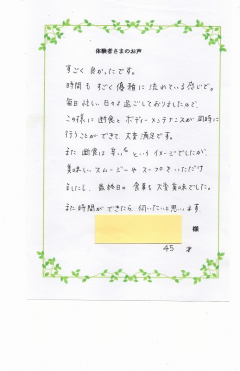 体験者さまのお声
すごく良かったです。
時間もすごく優雅に流れている感じで。
毎日忙しい日々を過ごしておりましたので、
この様に断食とボディーメンテナンスが同時に
行うことができて、大変満足です。
また断食は辛い〜というイメージでしたが、
美味しいスムージーやスープをいただけ
ましたし、最終日の食事も大変美味でした。
また時間ができたら伺いたいと思います
様
45 才